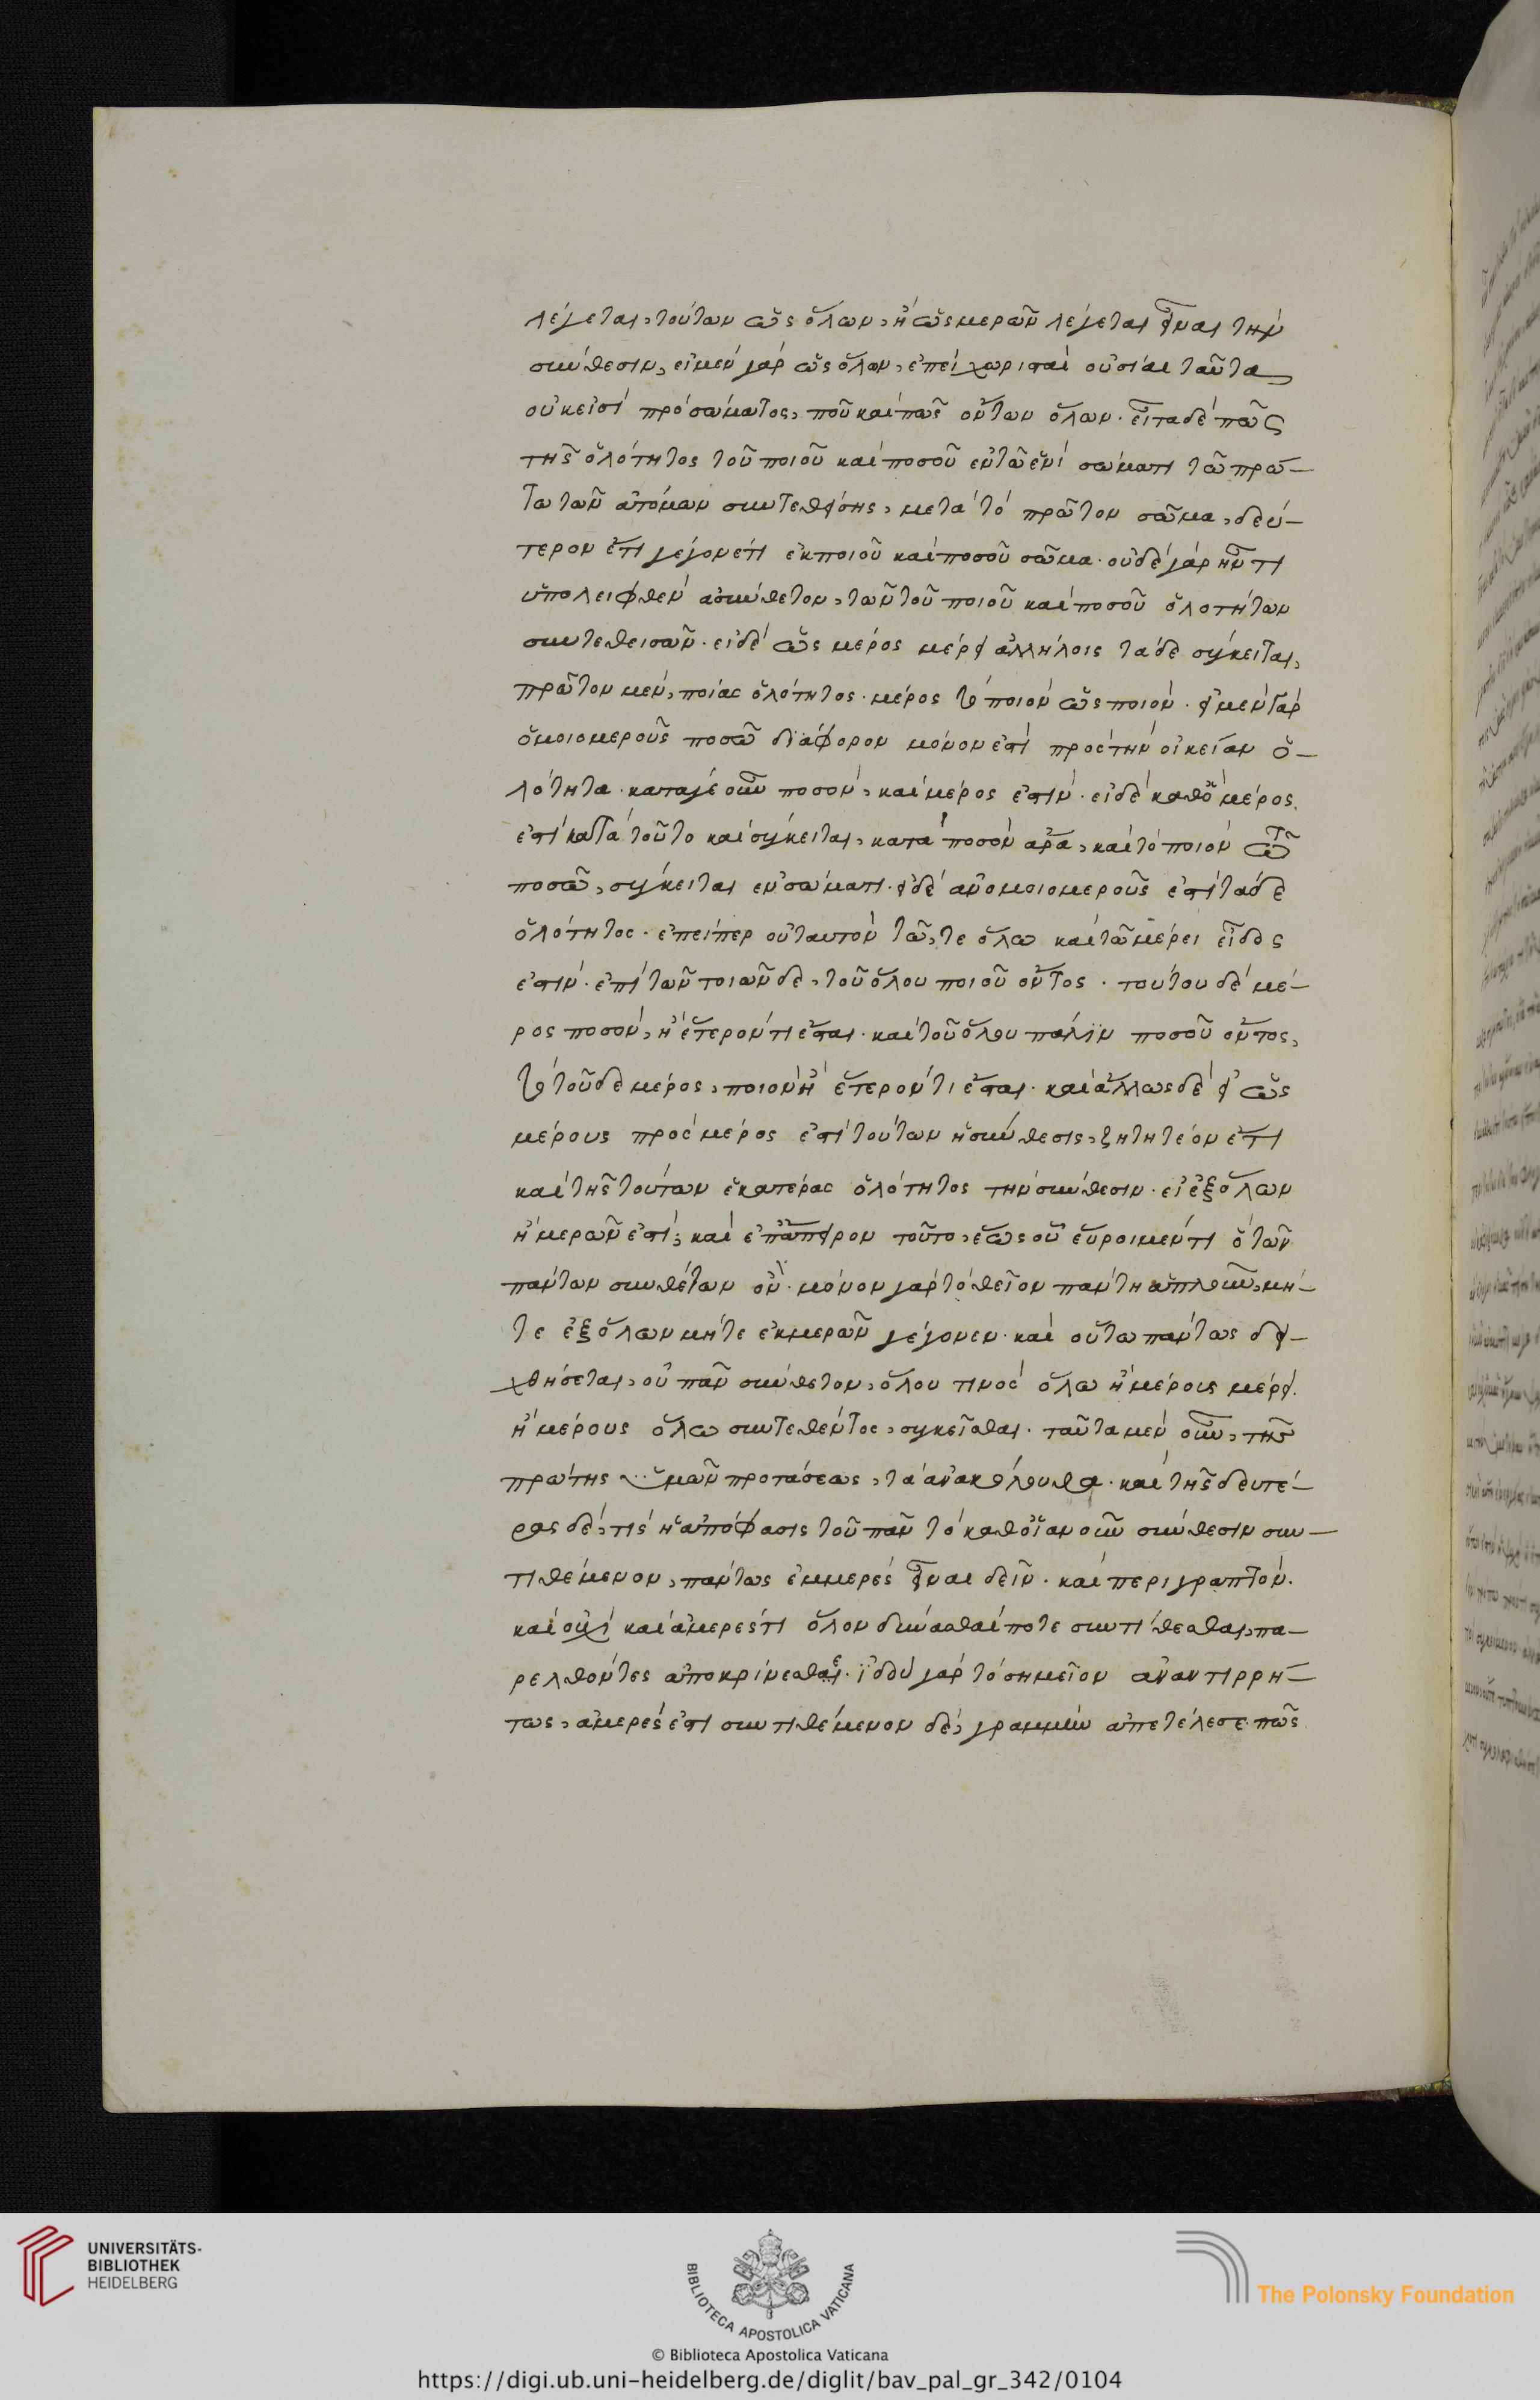 λέγεται, τούτων ὡς ὅλων, ἢ ὡς μερῶν λέγεται εἶναι τὴν
σύνθεσιν, εἰ μὲν γὰρ ὡς ὅλων, ἐπεὶ χωρισταὶ οὐσίαι ταῦτα
οὐκ εἰσὶ πρὸ σώματος, ποῦ καὶ πῶς ὄντων ὅλων. εἶτα δὲ πῶς
τῆς ὁλότητος τοῦ ποιοῦ καὶ ποσοῦ ἐν τῷ ἑνὶ σώματι τῷ πρώ-
τω τῶν ἀτόμων συντεθείσης, μετὰ τὸ πρῶτον σῶμα, δεύ-
τερον ἔτι γέγονέ τι ἐκ ποιοῦ καὶ ποσοῦ σῶμα. οὐδὲ γὰρ ἦν τι
ὑπολειφθὲν ἀσύνθετον, τῶν τοῦ ποιοῦ καὶ ποσοῦ ὁλοτήτων
συντεθεισῶν. εἰ δὲ ὡς μέρος μέρει ἀλλήλοις τάδε σύγκειται,
πρῶτον μὲν, ποίας ὁλότητος. μέρος τὸ ποιὸν ὡς ποιὸν. εἰ μὲν γὰρ
ὁμοιομεροῦς ποσῷ διάφορον μόνον ἐστὶ πρὸς τὴν οἰκείαν ὁ-
λότητα. κατά γε οὖν ποσὸν, καὶ μέρος ἐστὶν. εἰ δὲ καθὸ μέρος
ἐστὶ κατὰ τοῦτο καὶ σύγκειται, κατὰ ποσὸν ἄρα, καὶ τὸ ποιὸν τῷ
ποσῷ, σύγκειται ἐν σώματι. εἰ δὲ ἀνομοιομεροῦς ἐστὶ τάδε
ὁλότητος. ἐπείπερ οὐ ταυτὸν τῷ, τε ὅλω καὶ τῷ μέρει εἶδός
ἐστιν. ἐπὶ τῶν ποιῶν δε, τοῦ ὅλου ποιοῦ ὄντος. τούτου δὲ μέ-
ρος ποσὸν, ἢ ἕτερόν τι ἔσται. καὶ τοῦ ὅλου πάλιν ποσοῦ ὄντος,
τὸ τοῦδε μέρος, ποιὸν ἢ ἕτερόν τι ἔσται. καὶ ἄλλως δὲ εἰ ὡς
μέρους πρὸς μέρος ἐστὶ τούτων ἡ σύνθεσις, ζητητέον ἔτι
καὶ τῆς τούτων ἑκατέρας ὁλότητος τὴν σύνθεσιν. εἰ ἐξ ὅλων
ἢ μερῶν ἐστί; καὶ ἐπ' ἄπειρον τοῦτο, ἕως οὗ εὕροιμέν τι ὃ τῶν
πάντων συνθέτων οὐ. μόνον γὰρ τὸ θεῖον πάντη ἁπλοῦν, μή-
τε ἐξ ὅλων μήτε ἐκ μερῶν γέγονεν. καὶ οὕτω πάντως δει-
χθήσεται, οὐ πᾶν σύνθετον, ὅλου τινὸς ὅλω ἢ μέρους μέρει.
ἢ μέρους ὅλω συντεθέντος, συγκεῖσθαι. ταῦτα μὲν οὖν, τῆς
πρώτης ὑμῶν προτάσεως, τὰ ἀνακόλουθα. καὶ τῆς δευτέ-
ρας δὲ, τίς ἡ ἀπόφασις τοῦ πᾶν τὸ καθ' οἵαν οὖν σύνθεσιν συν-
τιθέμενον, πάντως ἐμμερὲς εἶναι δεῖν. καὶ περιγραπτόν.
καὶ οὐχὶ καὶ ἀμερές τι ὅλον δύνασθαί ποτε συντίθεσθαι, πα-
ρελθόντες ἀποκρίνεσθαι. ἰδοὺ γὰρ τὸ σημεῖον ἀναντιρρή-
τως, ἀμερές ἐστι συντιθέμενον δὲ, γραμμὴν ἀπετέλεσε. πῶς
UNIVERSITÄTS-
BIBLIOTHEK
HEIDELBERG
BIBLIOTECA APOSTOLICA VATICANA
The Polonsky Foundation
© Biblioteca Apostolica Vaticana
https://digi.ub.uni-heidelberg.de/diglit/bav_pal_gr_342/0104